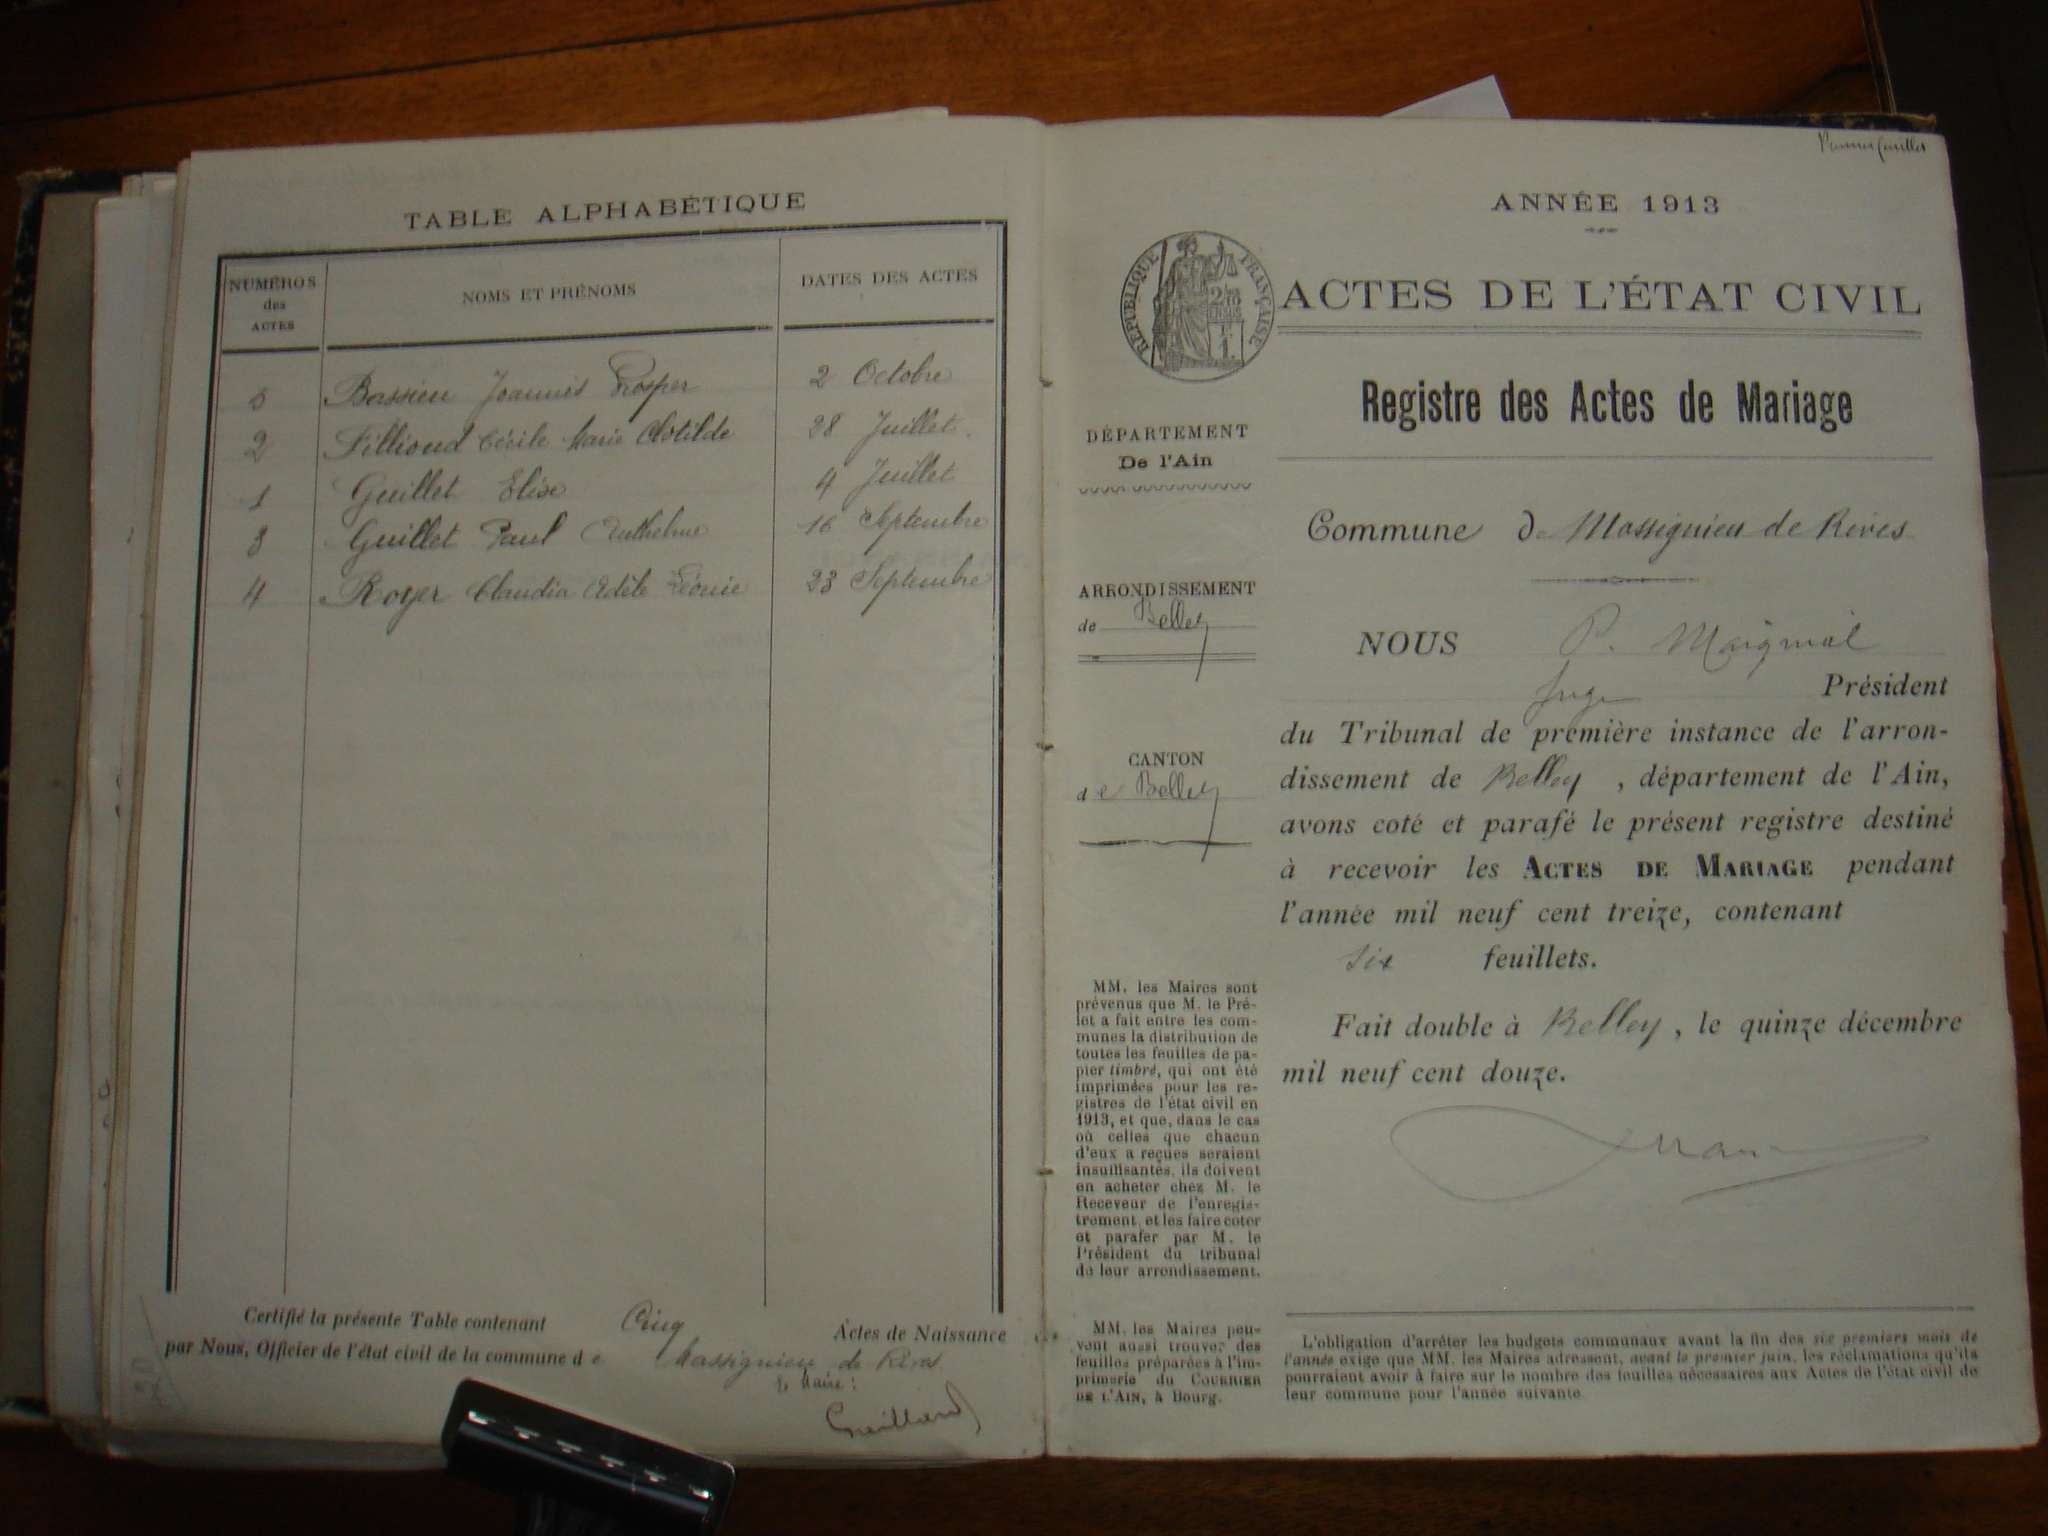 TABLE ALPHABÉTIQUE
NUMÉROS des ACTES
NOMS ET PRÉNOMS
DATES DES ACTES
5 Bassieu Joannès Prosper 2 Octobre
2 Fillioud Cécile Marie Clotilde 28 Juillet
1 Guillet Elise 4 Juillet
3 Guillet Paul Anthelme 16 Septembre
4 Royer Claudia Adèle Léonie 23 Septembre
Certifié la présente Table contenant Cinq Actes de Naissance
par Nous, Officier de l'état civil de la commune de Massignieu de Rives
Le Maire :
Premier feuillet
ANNÉE 1913
RÉPUBLIQUE FRANÇAISE
ACTES DE L'ÉTAT CIVIL
Registre des Actes de Mariage
DÉPARTEMENT
De l'Ain
Commune de Massignieu de Rives
ARRONDISSEMENT
de Belley
NOUS P.
Juge Président
du Tribunal de première instance de l'arron-
dissement de Belley, département de l'Ain,
avons coté et parafé le présent registre destiné
à recevoir les ACTES DE MARIAGE pendant
l'année mil neuf cent treize, contenant
six feuillets.
Fait double à Belley, le quinze décembre
mil neuf cent douze.
CANTON
de Belley
MM. les Maires sont
prévenus que M. le Pré-
fet a fait entre les com-
munes la distribution de
toutes les feuilles de pa-
pier timbré, qui ont été
imprimées pour les re-
gistres de l'état civil en
1913, et que, dans le cas
où celles que chacun
d'eux a reçues seraient
insuffisantes, ils doivent
en acheter chez M. le
Receveur de l'enregis-
trement, et les faire coter
et parafer par M. le
Président du tribunal
de leur arrondissement.
MM. les Maires peu-
vent aussi trouver des
feuilles préparées à l'im-
primerie du COURRIER
DE L'AIN, à Bourg.
L'obligation d'arrêter les budgets communaux avant la fin des six premiers mois de
l'année exige que MM. les Maires adressent, avant le premier juin, les réclamations qu'ils
pourraient avoir à faire sur le nombre des feuilles nécessaires aux Actes de l'état civil de
leur commune pour l'année suivante.